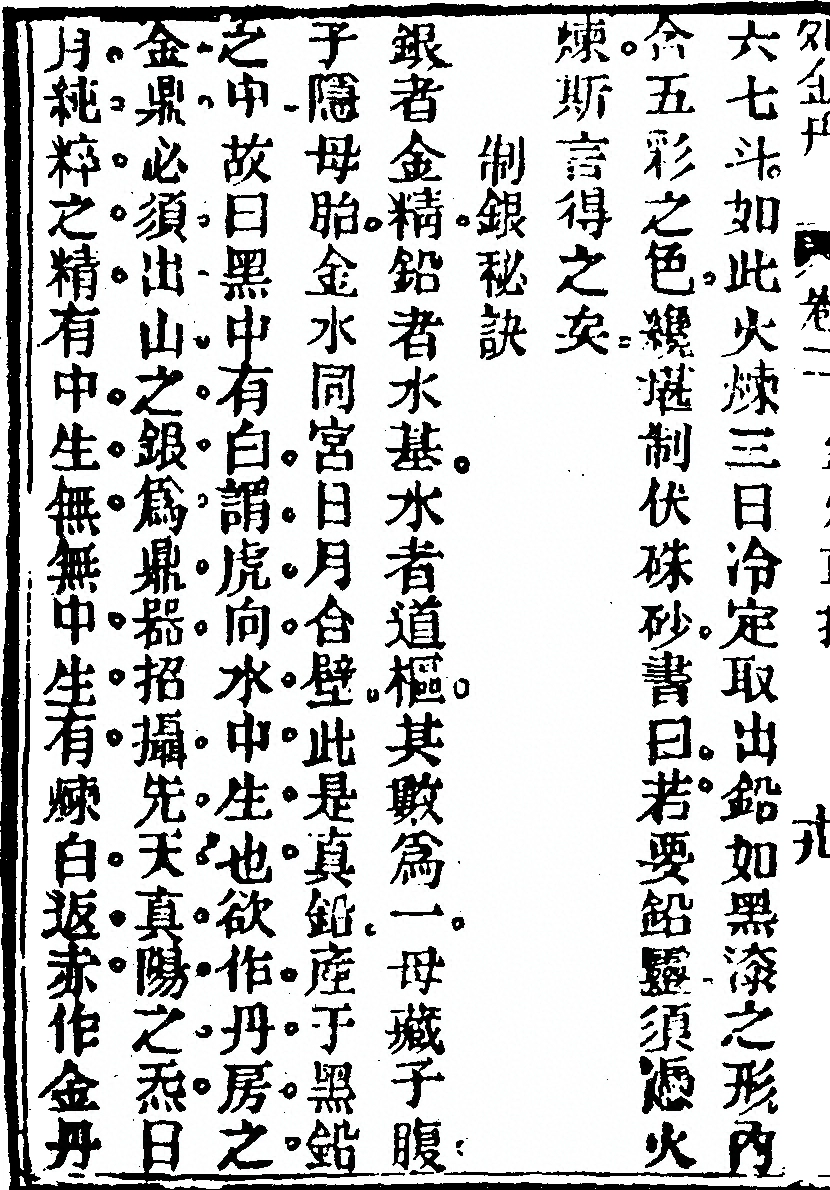 六七斗如此火煉三日冷定取出鉛如黑漆之形內
含五彩之色纔堪制伏硃砂書曰若要鉛靈須憑火
煉斯言得之矣
制銀秘訣
銀者金精鉛者水基水者道樞其數爲一母藏子腹
子隱母胎金水同宮日月合璧此是真鉛產于黑鉛
之中故曰黑中有白謂虎向水中生也欲作丹房之
金鼎必須出山之銀爲鼎器招攝先天真陽之炁日
月純粹之精有中生無無中生有煉白返赤作金丹